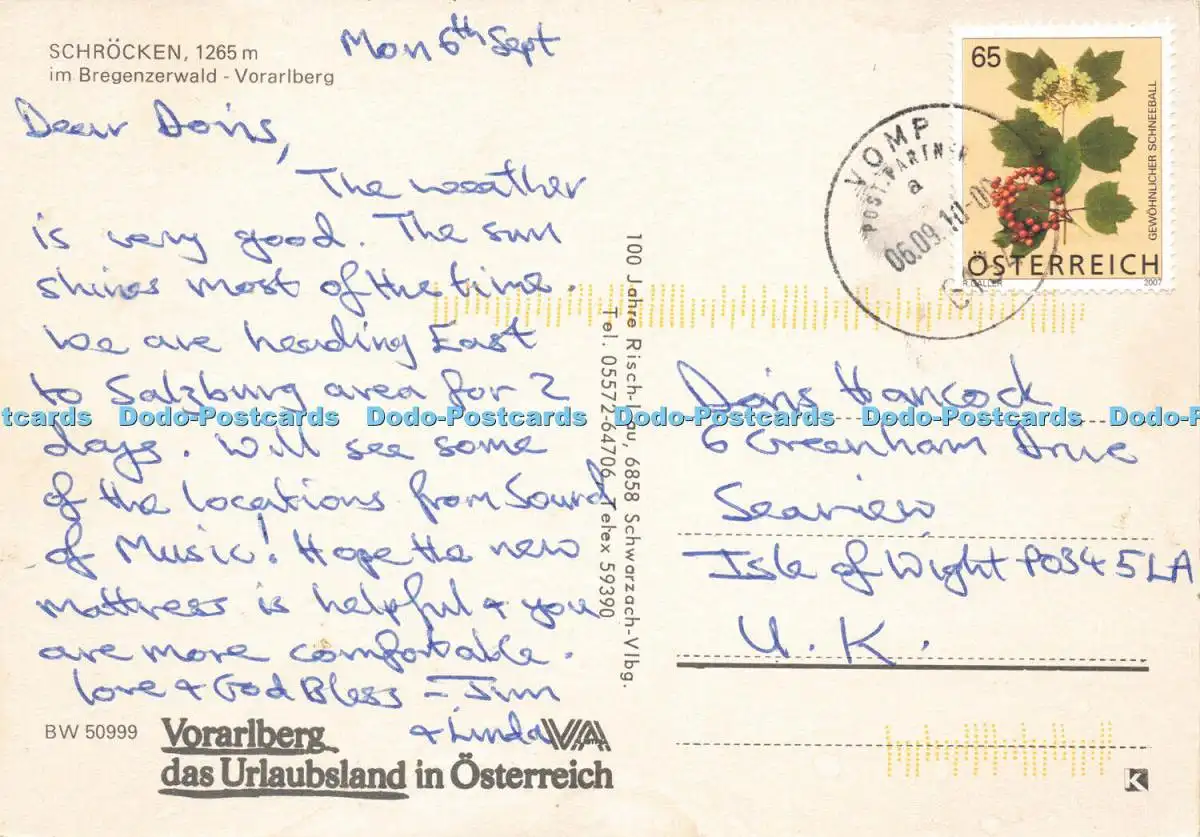 SCHRÖCKEN, 1265 m
im Bregenzerwald - Vorarlberg
Mon 6th Sept
Dear Doris,
The weather
is very good. The sun
shines most of the time.
We are heading East
to Salzburg area for 2
days. Will see some
of the locations from Sound
of Music! Hope the new
mattress is helpful & you
are more comfortable.
love & God Bless - Jim
& Linda
BW 50999
Vorarlberg
das Urlaubsland in Österreich
VA
100 Jahre Risch-Lau, 6858 Schwarzach-Vlbg.
Tel. 05572-64706 Telex 59390
65
GEWÖHNLICHER SCHNEEBALL
ÖSTERREICH
R.GALLER 2007
VOMP
POST.PARTNER
a
06.09.10-00
Doris Hancock
6 Greenham Drive
Seaview
Isle of Wight PO34 5LA
U.K.
K
tcards Dodo-Postcards Dodo-Postcards Dodo-Postcards Dodo-Postcards Dodo-Post